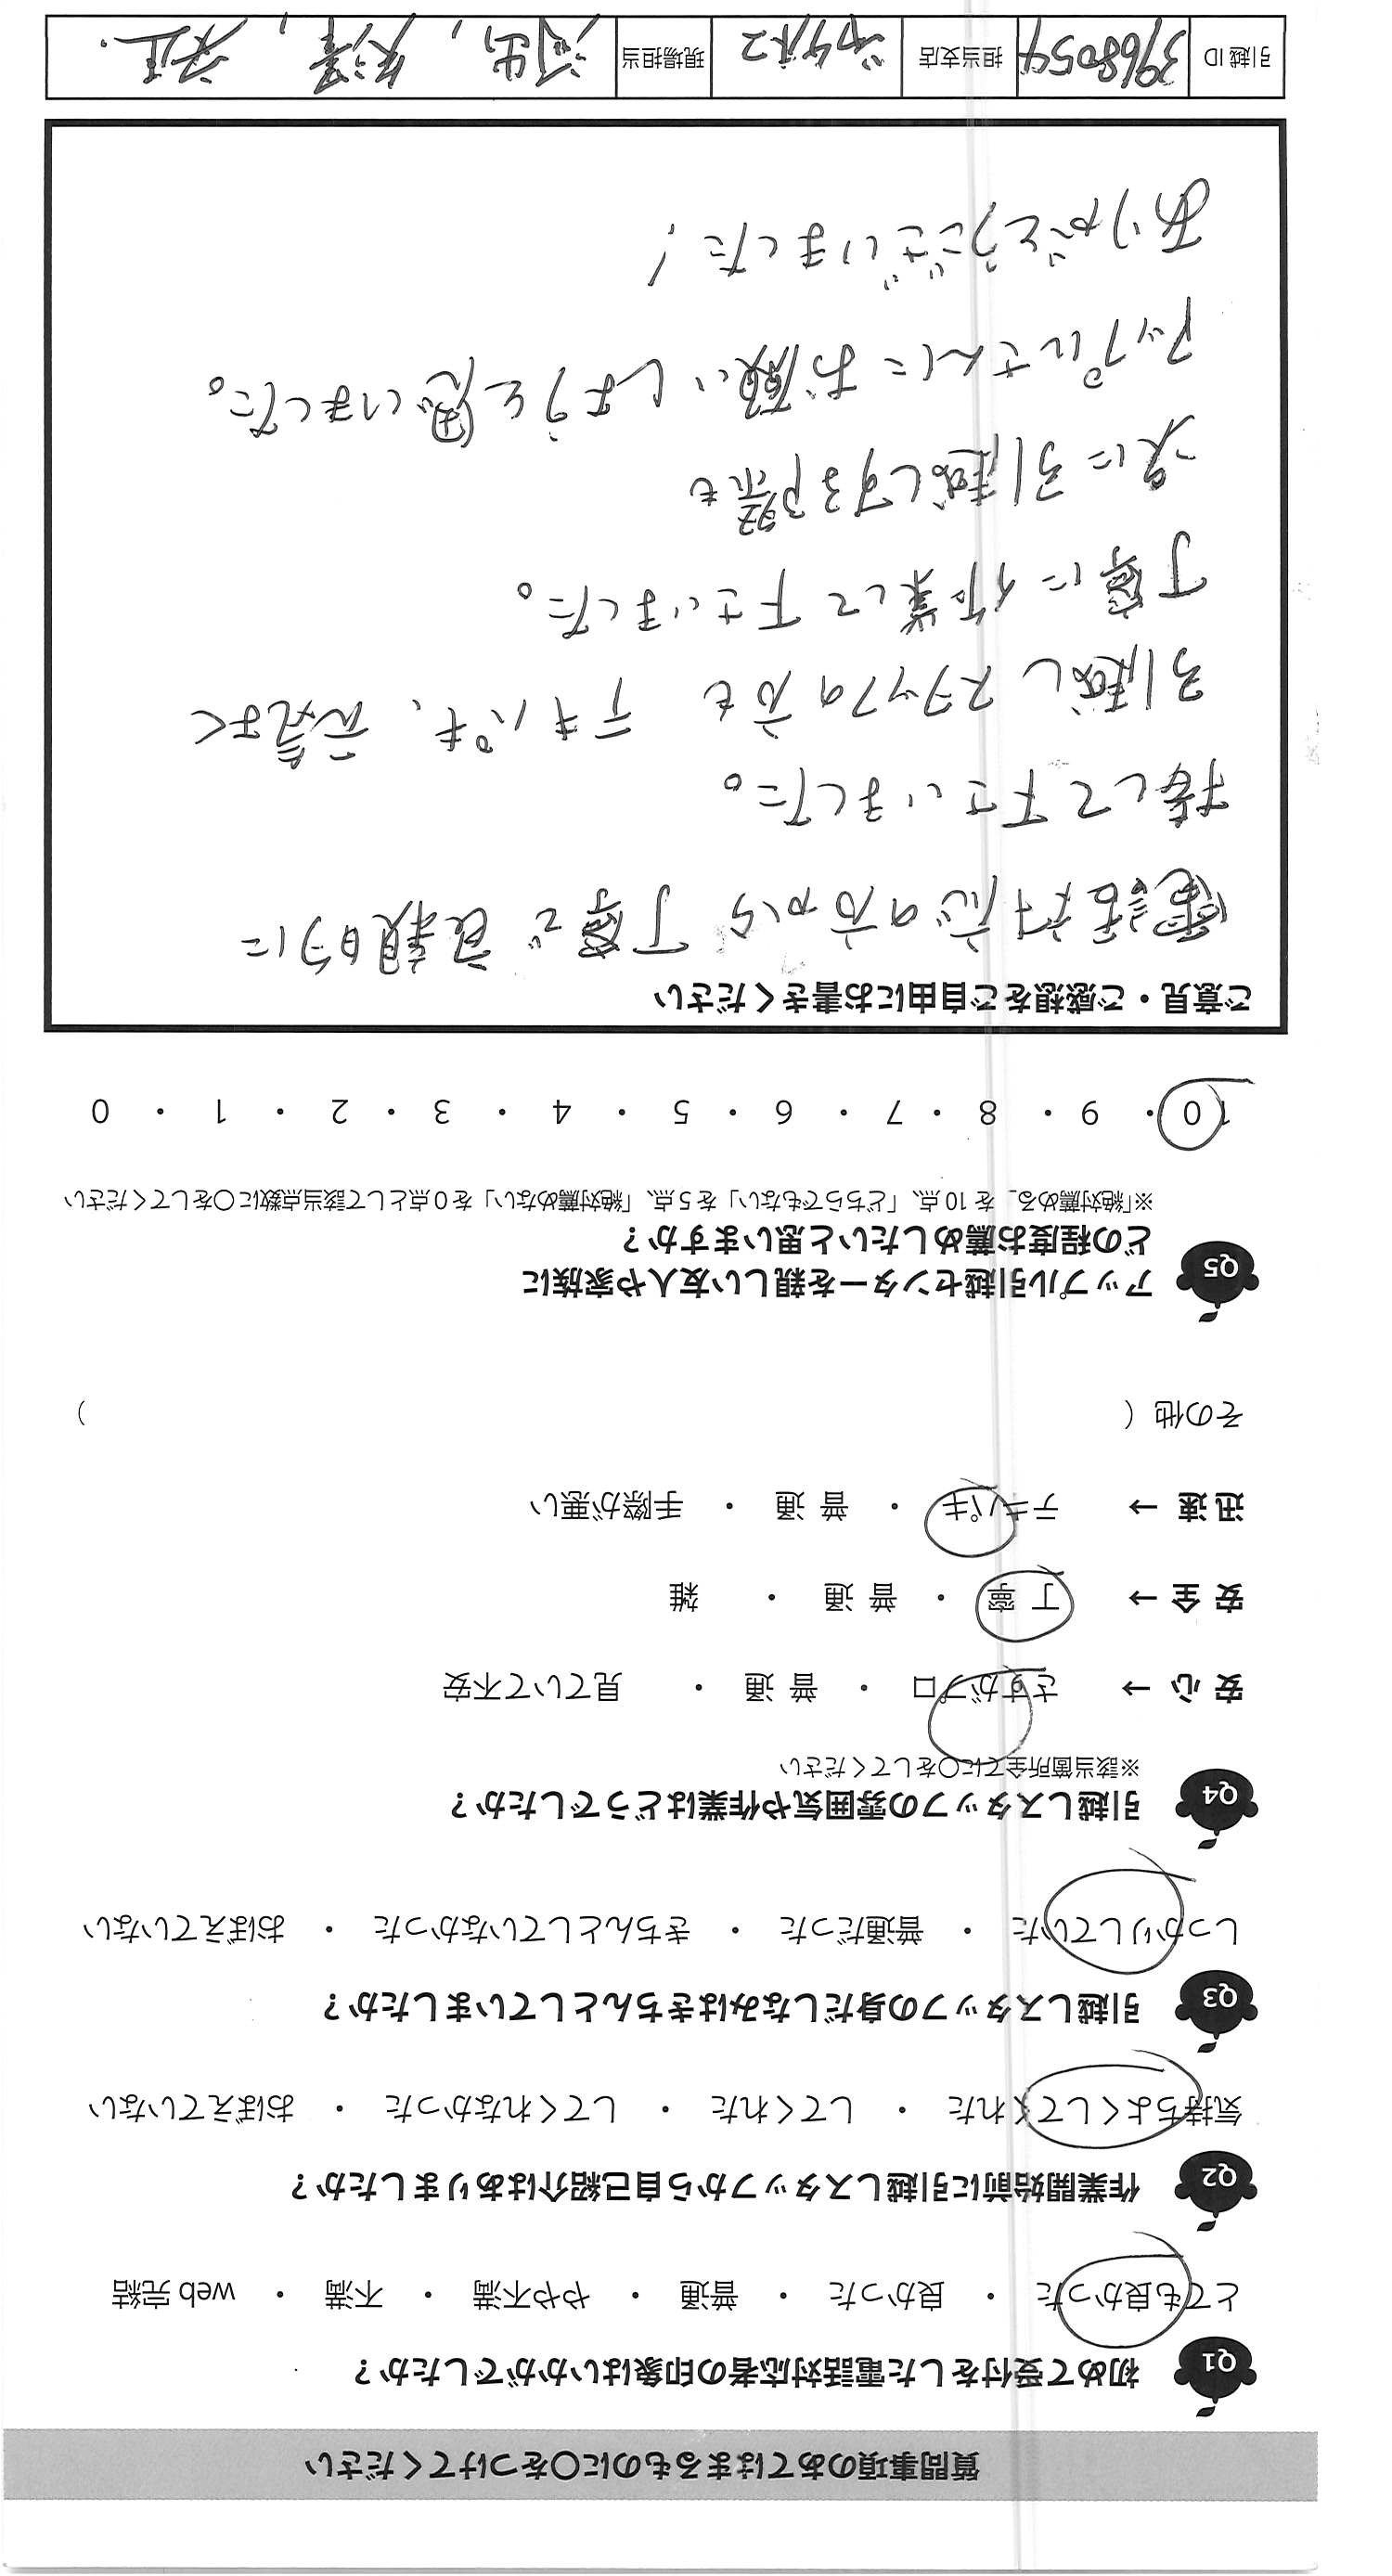 質問事項のあてはまるものに○をつけてください
Q1 初めて受付をした電話対応者の印象はいかがでしたか？
とても良かった ・ 良かった ・ 普通 ・ やや不満 ・ 不満 ・ web 完結
Q2 作業開始前に引越しスタッフから自己紹介はありましたか？
気持ちよくしてくれた ・ してくれた ・ してくれなかった ・ おぼえていない
Q3 引越しスタッフの身だしなみはきちんとしていましたか？
しっかりしていた ・ 普通だった ・ きちんとしていなかった ・ おぼえていない
Q4 引越しスタッフの雰囲気や作業はどうでしたか？
※該当箇所全てに○をしてください
安 心 → さすがプロ ・ 普 通 ・ 見ていて不安
安 全 → 丁 寧 ・ 普 通 ・ 雑
迅 速 → テキパキ ・ 普 通 ・ 手際が悪い
その他 （ ）
Q5 アップル引越センターを親しい友人や家族に
どの程度お薦めしたいと思いますか？
※「絶対薦める」を 10 点、「どちらでもない」を 5 点、「絶対薦めない」を 0 点として該当点数に○をしてください
10 ・ 9 ・ 8 ・ 7 ・ 6 ・ 5 ・ 4 ・ 3 ・ 2 ・ 1 ・ 0
ご意見・ご感想をご自由にお書きください
電話対応の方から 丁寧で 親切に
接して下さいました。
引越しスタッフの方も テキパキ、元気よく
丁寧に作業して下さいました。
次に引越しする際も
アップルさんにお願いしようと思いました。
ありがとうございました！
引越 ID 3968054 担当支店 現場担当 河出, 矢澤,